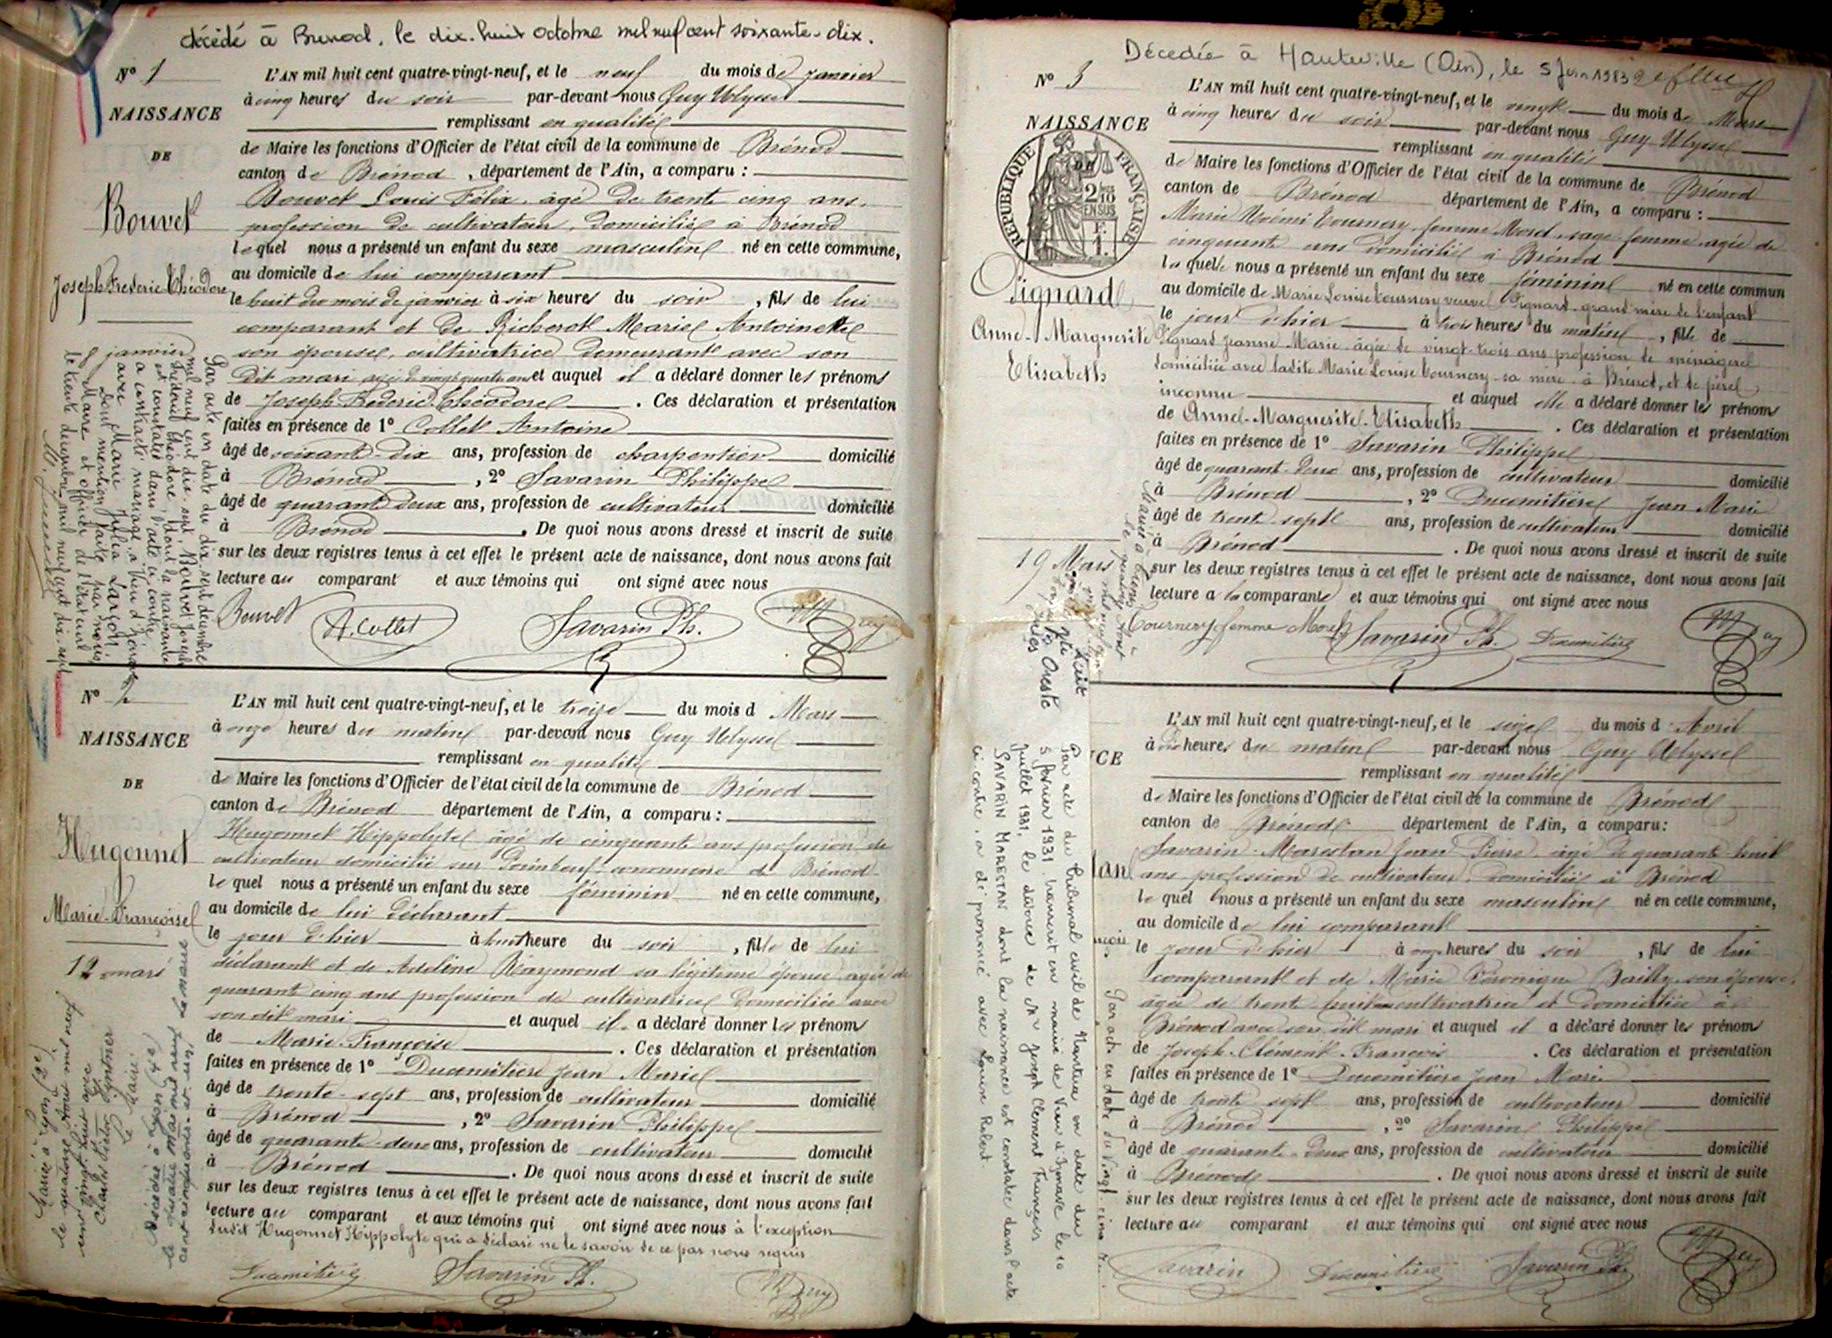 décédé à Brenod, le dix-huit octobre mil neuf cent soixante-dix.
N° 1
NAISSANCE
DE
Bouvet
Joseph Frederic Théodore
L'AN mil huit cent quatre-vingt-neuf, et le neuf du mois de janvier
à cinq heures du soir par-devant nous Guy Ulysse
remplissant en qualité
de Maire les fonctions d'Officier de l'état civil de la commune de Brénod
canton de Brénod, département de l'Ain, a comparu :
Bouvet Louis Félix, âgé de trente cinq ans,
profession de cultivateur, domicilié à Brénod
lequel nous a présenté un enfant du sexe masculin né en cette commune,
au domicile de lui comparant
le huit du mois de janvier à six heures du soir, fils de lui
comparant et de Richerot Marie Antoinette
son épouse, cultivatrice demeurant avec son
dit mari et auquel il a déclaré donner les prénoms
de Joseph Frederic Théodore. Ces déclaration et présentation
faites en présence de 1° Collet Antoine
âgé de soixante-dix ans, profession de charpentier domicilié
à Brénod, 2° Savarin Philippe
âgé de quarante deux ans, profession de cultivateur domicilié
à Brénod. De quoi nous avons dressé et inscrit de suite
sur les deux registres tenus à cet effet le présent acte de naissance, dont nous avons fait
lecture au comparant et aux témoins qui ont signé avec nous
Bouvet A. Collet Savarin Ph. Guy
Par acte en date du dix sept décembre
mil neuf cent dix sept Bouvet Joseph
Frédéric Théodore, dont la naissance
est constatée dans l'acte ci contre
a contracté mariage à
avec Marie Julia
dont mention faite par nous
Maire et officier de l'état civil
le trente décembre mil neuf cent dix-sept
8 janvier
N° 2
NAISSANCE
DE
Hugonnet
Marie-Françoise
12 mars
L'AN mil huit cent quatre-vingt-neuf, et le treize du mois d Mars
à onze heures du matin par-devant nous Guy Ulysse
remplissant en qualité
de Maire les fonctions d'Officier de l'état civil de la commune de Brénod
canton de Brénod département de l'Ain, a comparu :
Hugonnet Hippolyte âgé de cinquante ans profession de
cultivateur domicilié sur commune de Brénod
lequel nous a présenté un enfant du sexe féminin né en cette commune,
au domicile de lui déclarant
le jour d'hier à huit heure du soir, fille de lui
déclarant et de Adeline Raymond sa légitime épouse agée de
quarante cinq ans profession de cultivatrice domiciliée avec
son dit mari et auquel il a déclaré donner les prénom
de Marie-Françoise. Ces déclaration et présentation
faites en présence de 1° Ducimitière Jean Marie
âgé de trente-sept ans, profession de cultivateur domicilié
à Brénod, 2° Savarin Philippe
âgé de quarante-deux ans, profession de cultivateur domicilié
à Brénod. De quoi nous avons dressé et inscrit de suite
sur les deux registres tenus à cet effet le présent acte de naissance, dont nous avons fait
lecture au comparant et aux témoins qui ont signé avec nous à l'exception
dudit Hugonnet Hippolyte qui a déclaré ne le savoir de ce par nous requis
Savarin Ph. Guy
Mariée à Lyon (2e)
le quatorze Aout mil neuf
cent vingt huit avec
Charles Victor
le Maire
Décédée à Lyon (4e)
le quatre mai mil neuf
cent cinquante-et-un
Le Maire
Décedée à Hauteville (Ain), le 5 Juin 1983
N° 3
NAISSANCE
RÉPUBLIQUE FRANÇAISE
2/10 EN SUS
Pignard
Anne-Marguerite
Elisabeth
19 Mars
L'AN mil huit cent quatre-vingt-neuf, et le vingt du mois de Mars
à cinq heures du soir par-devant nous Guy Ulysse
remplissant en qualité
de Maire les fonctions d'Officier de l'état civil de la commune de Brénod
canton de Brénod département de l'Ain, a comparu :
Marie Noémi Tournery femme Morel sage femme agée de
cinquante ans domiciliée à Brénod
laquelle nous a présenté un enfant du sexe féminine né en cette commun
au domicile de Marie Louise Tournery veuve Pignard grand'mère de l'enfant
le jour d'hier à trois heures du matin, fille de
Pignard Jeanne-Marie âgée de vingt-trois ans profession de ménagère
domiciliée avec ladite Marie Louise Tournery sa mère à Brénod, et de père
inconnu et auquel elle a déclaré donner les prénoms
de Anne-Marguerite-Elisabeth. Ces déclaration et présentation
faites en présence de 1° Savarin Philippe
âgé de quarant-deux ans, profession de cultivateur domicilié
à Brénod, 2° Ducimitière Jean Marie
âgé de trente sept ans, profession de cultivateur domicilié
à Brénod. De quoi nous avons dressé et inscrit de suite
sur les deux registres tenus à cet effet le présent acte de naissance, dont nous avons fait
lecture a la comparante et aux témoins qui ont signé avec nous
Tournery femme Morel Savarin Ph. Ducimitière Guy
Par acte du Tribunal civil de Nantua en date du
5 février 1931 transcrit en mairie de Vieu d'Izenave le 10
juillet 1931, le divorce de Mr Joseph Clément François
SAVARIN MARESTAN dont la naissance est constatée dans l'acte
ci contre, a été prononcé avec Louise Robert
CE
L'AN mil huit cent quatre-vingt-neuf, et le seize du mois d Avril
à dix heures du matin par-devant nous Guy Ulysse
remplissant en qualité
de Maire les fonctions d'Officier de l'état civil de la commune de Brénod
canton de Brénod département de l'Ain, a comparu:
Savarin-Marestan Jean Pierre âgé de quarante huit
ans profession de cultivateur domicilié à Brénod
lequel nous a présenté un enfant du sexe masculin né en cette commune,
au domicile de lui comparant
le jour d'hier à onze heures du soir, fils de lui
comparant et de Marie Véronique Bailly son épouse,
agée de trente huit cultivatrice et domiciliée à
Brénod avec son dit mari et auquel il a déclaré donner les prénom
de Joseph-Clément-François. Ces déclaration et présentation
faites en présence de 1° Ducimitière Jean Marie
âgé de trente sept ans, profession de cultivateur domicilié
à Brénod, 2° Savarin Philippe
âgé de quarante-deux ans, profession de cultivateur domicilié
à Brénod. De quoi nous avons dressé et inscrit de suite
sur les deux registres tenus à cet effet le présent acte de naissance, dont nous avons fait
lecture au comparant et aux témoins qui ont signé avec nous
Savarin Ducimitière Savarin Ph. Guy
Par acte en date du vingt-cinq